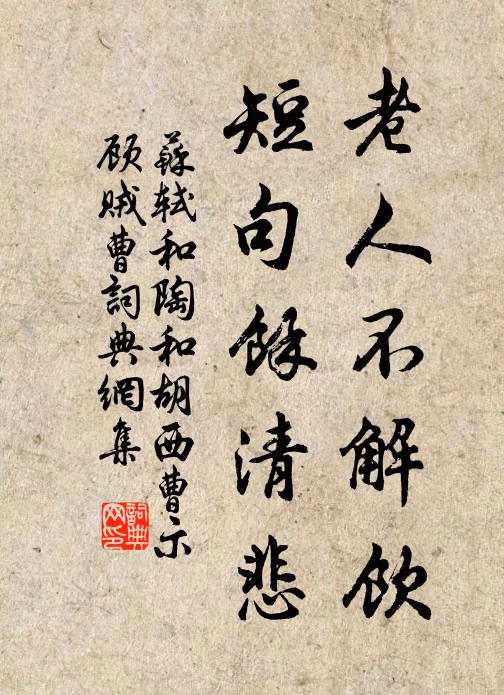 老人不解飲
短句餘清悲
蘇軾和陶和胡西曹示
顾賊曹詞典網集
詞典
网印